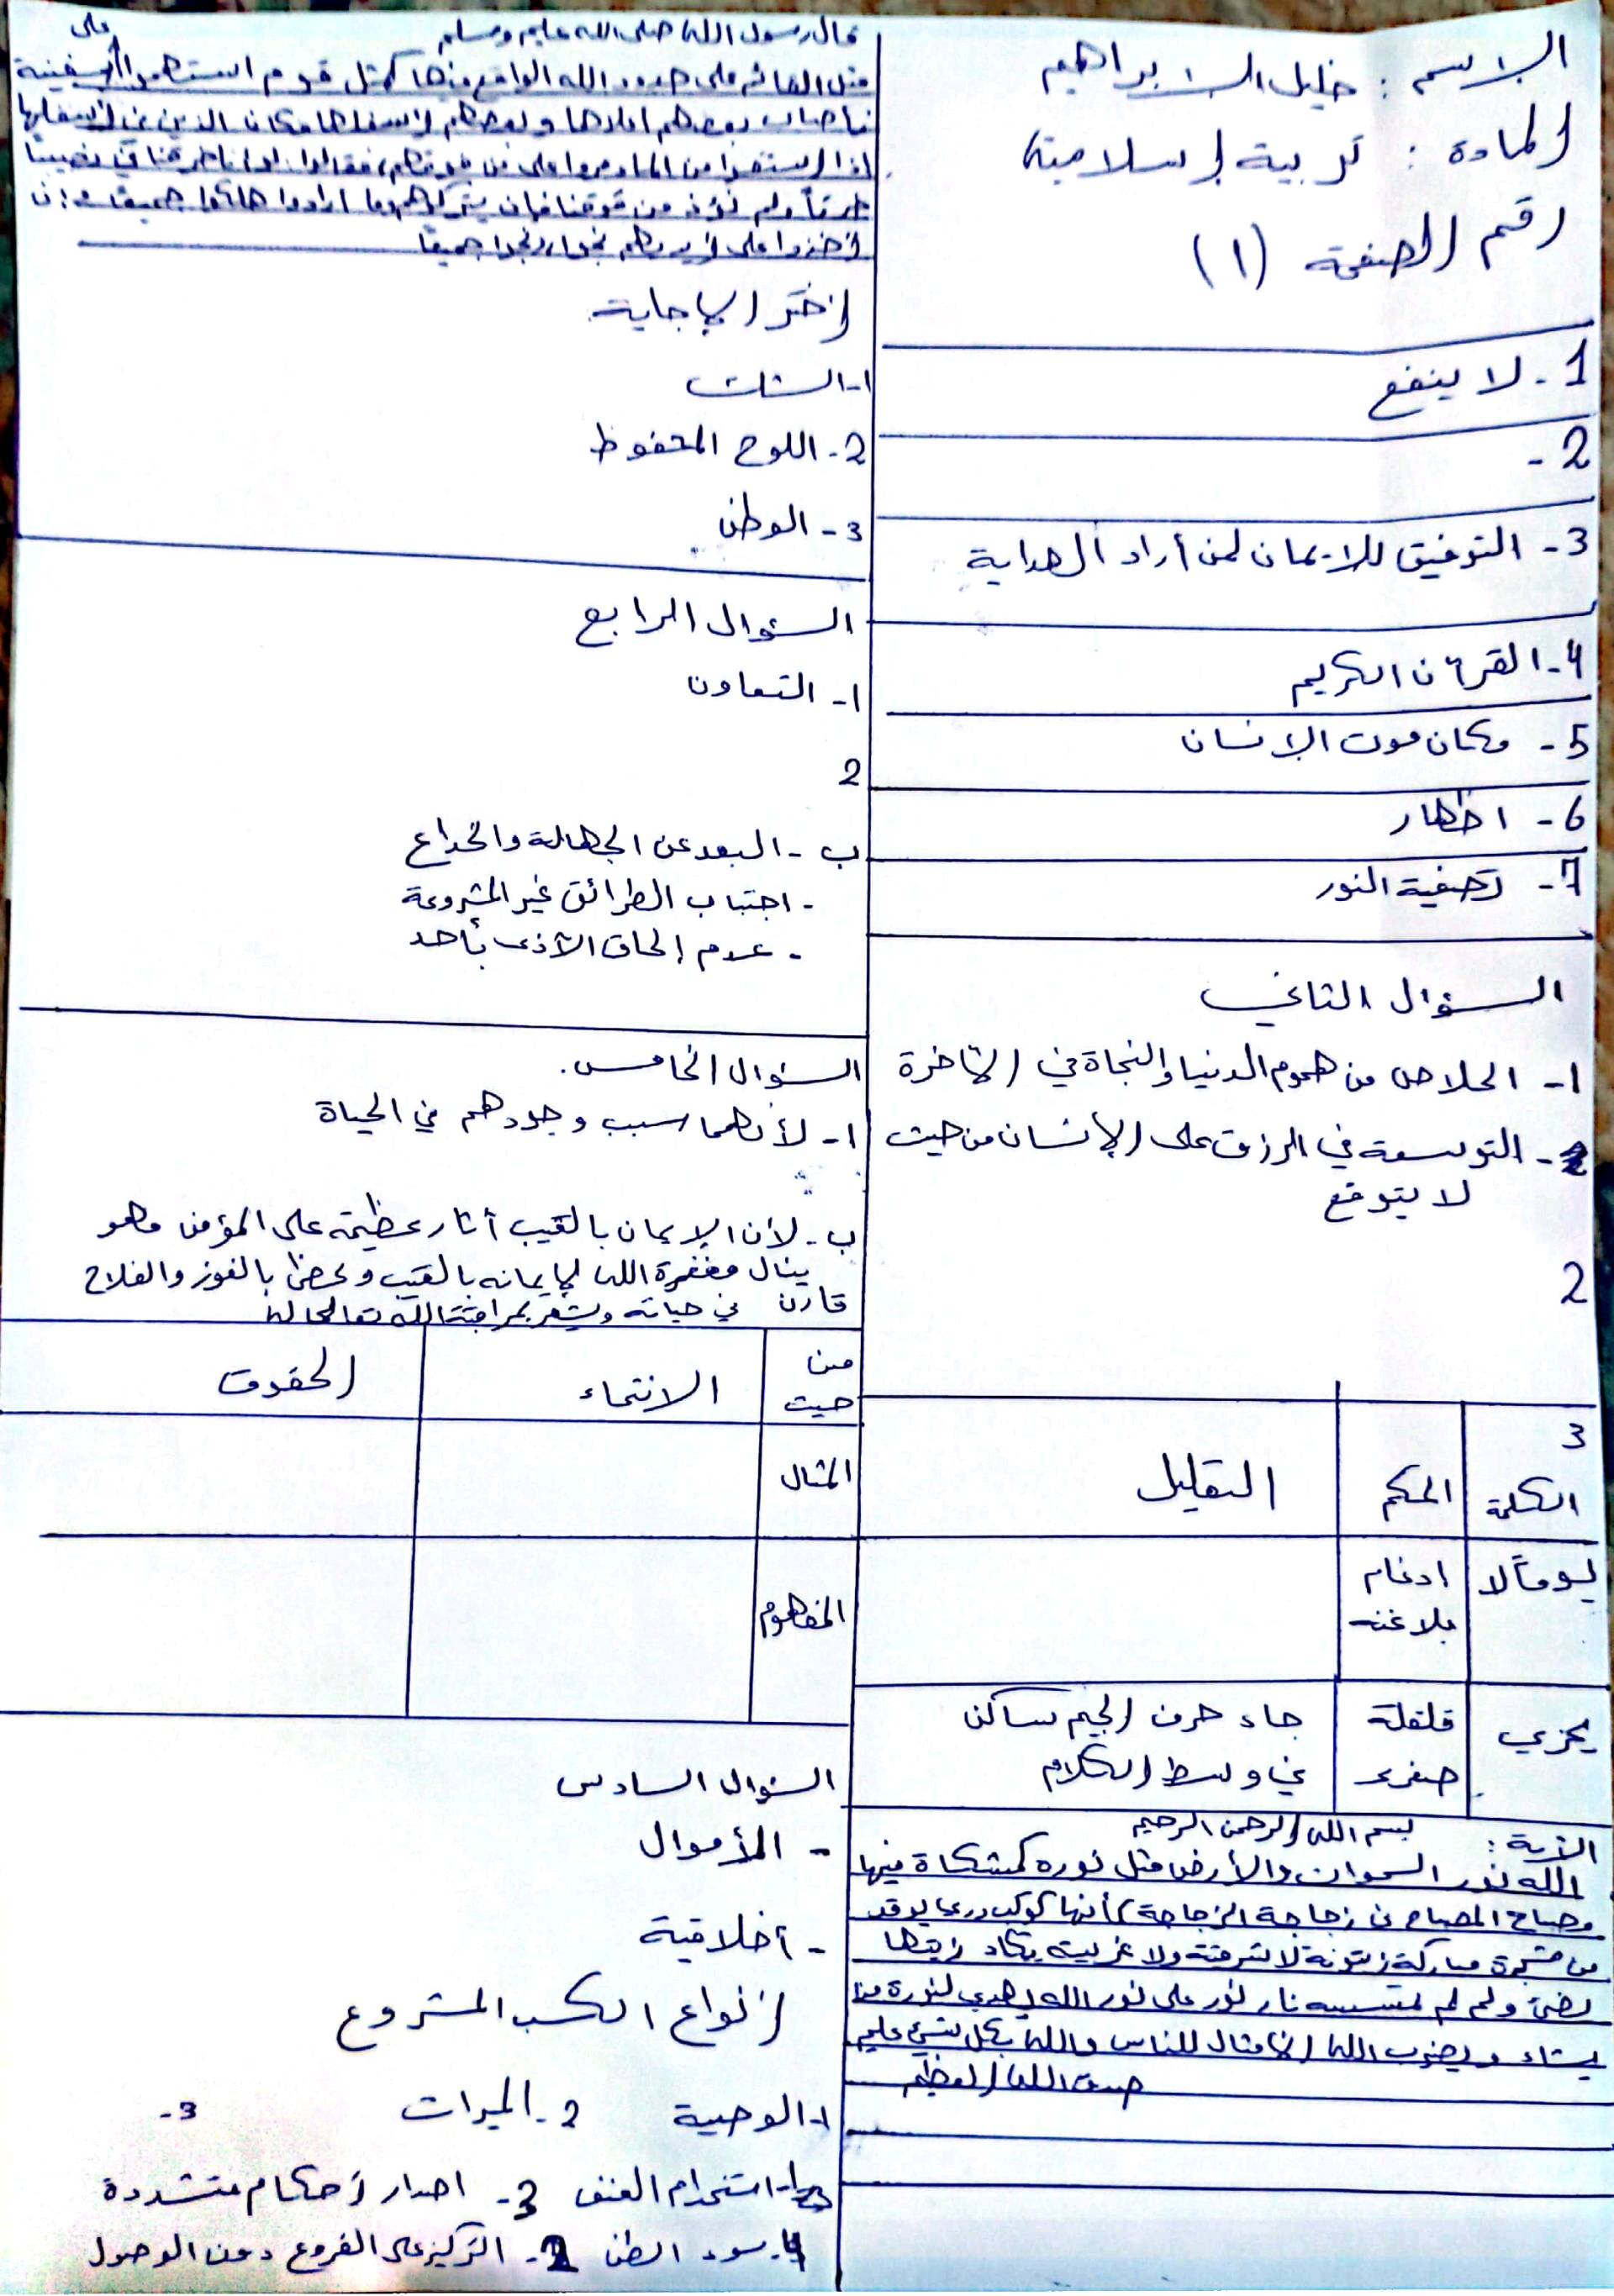 الاسم : خليل البراهيم
المادة : تربية إسلامية
رقم الصفحة (١)
1- لا ينفع
2-
3- التوفيق للايمان لمن أراد الهداية
4- القرآن الكريم
5- مكان موت الإنسان
6- اظهار
7- تصفية النور
السؤال الثاني
1- الخلاص من هموم الدنيا والنجاة في الآخرة
2- التوسعة في الرزق على الإنسان من حيث
لا يتوقع
2
3
الكلمة الحكم التعليل
يوماً لا ادغام
بلا غنه
يجزي قلقلة جاء حرف الجيم ساكن
صغرى في وسط الكلام
الآية : بسم الله الرحمن الرحيم
الله نور السموات والأرض مثل نوره كمشكاة فيها
مصباح المصباح في زجاجة الزجاجة كأنها كوكب دري يوقد
من شجرة مباركة زيتونة لا شرقية ولا غربية يكاد زيتها
يضئ ولو لم تمسسه نار نور على نور الله يهدي لنوره من
يشاء ويضرب الله الأمثال للناس والله بكل شيئ عليم
صدق الله العظيم
قال رسول الله صلى الله عليه وسلم
مثل القائم على حدود الله الواقع فيها كمثل قوم استهموا على سفينة
فأصاب بعضهم اعلاها وبعضهم أسفلها وكان الذين في أسفلها
اذا استقوا من الماء مروا على من فوقهم، فقالوا لو انا خرقنا في نصيبنا
خرقاً ولم نؤذ من فوقنا فإن يتركوهم وما ارادوا هلكوا جميعاً وإن
أخذوا على أيديهم نجوا ونجوا جميعاً
أختر الإجابة
1- الشك
2- اللوح المحفوظ
3- الوطن
السؤال الرابع
1- التعاون
2
ب - البعد عن الجهالة والخداع
- اجتباب الطرائق غير المشروعة
- عدم إلحاق الأذى بأحد
السؤال الخامس.
1- لأنهما سبب وجودهم في الحياة
ب- لأن الإيمان بالغيب أثار عظيمة على المؤمن فهو
ينال مغفرة الله لإيمانه بالغيب ويحضى بالفوز والفلاح
في حياته ويشعر بمراقبة الله تعالى له
قارن
من حيث الانتماء الحقوق
المثال
المفهوم
السؤال السادس
- الأموال
- أخلاقية
أنواع الكسب المشروع
1- الوصية 2- الميراث 3-
1- استخدام العنف 3- اصدار أحكام متشددة
4- سوء الظن 2- التركيز على الفروع دون الوصول